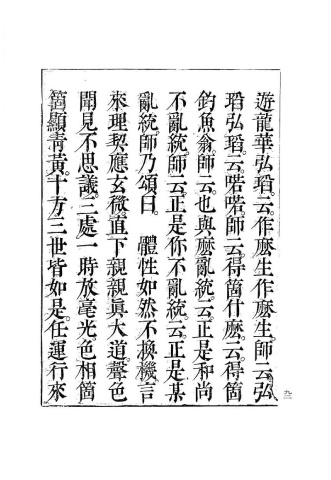 遊龍華弘瑫。云。作麽生作麽生。師云。弘
瑫弘瑫。云。喏喏。師云。得箇什麽。云。得箇
釣魚翁。師云。也與麽亂統。云。正是和尚
不亂統。師云。正是你不亂統。云。正是某
亂統。師乃頌曰。　體性如然不換機。言
來理契應玄微。直下親親眞大道。聲色
聞見不思議。三處一時放毫光。色相箇
箇顯靑黃。十方三世皆如是。任運行來